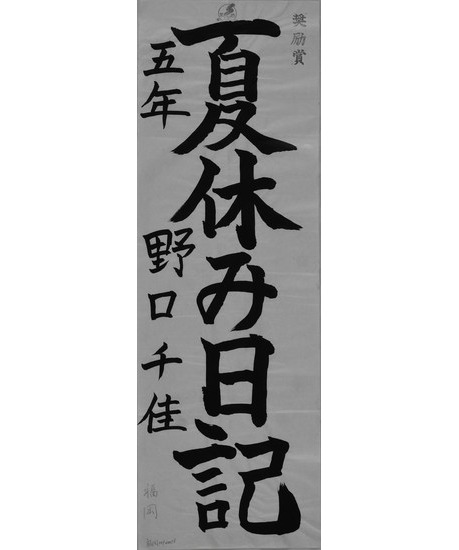 奨励賞
夏休み日記
五年 野口千佳
福岡